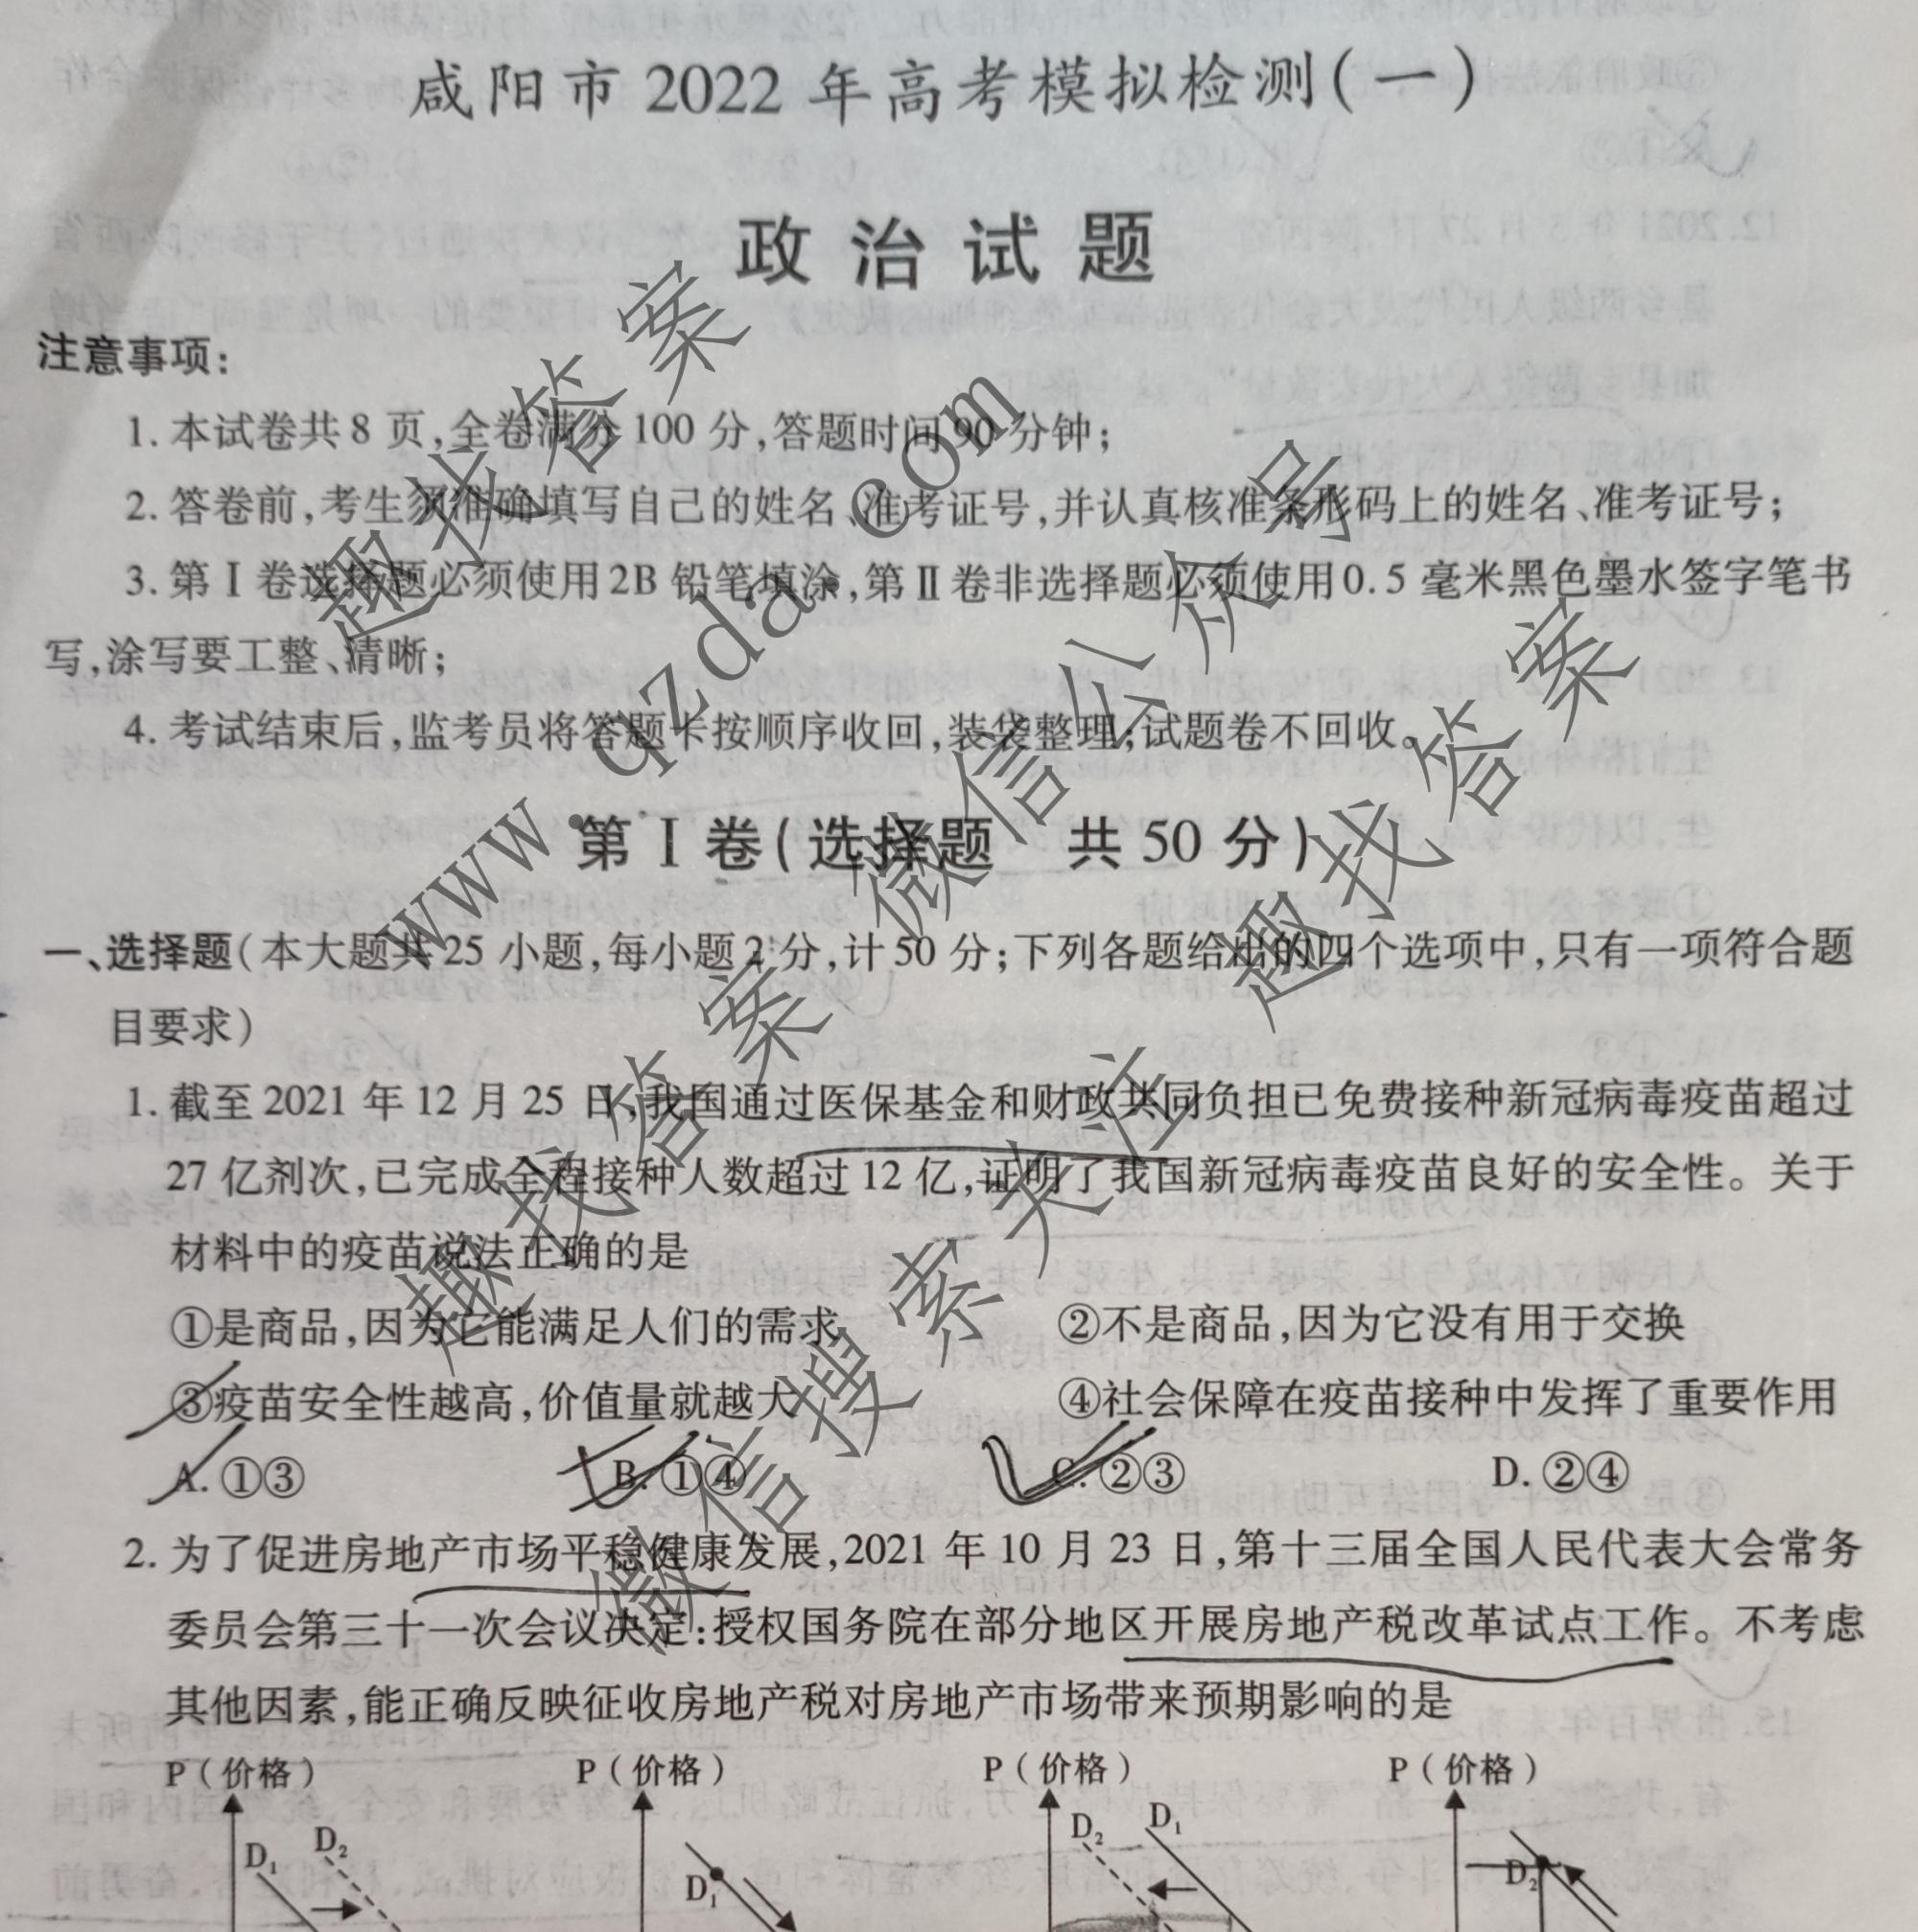 咸阳市2022年高考模拟检测(一)
政治试题
注意事项:
1.本试卷共8页,全卷满分100分,答题时间90分钟;
2.答卷前,考生须准确填写自己的姓名、准考证号,并认真核准条形码上的姓名、准考证号;
3.第Ⅰ卷选择题必须使用2B铅笔填涂,第Ⅱ卷非选择题必须使用0.5毫米黑色墨水签字笔书
写,涂写要工整、清晰;
4.考试结束后,监考员将答题卡按顺序收回,装袋整理;试题卷不回收。
第Ⅰ卷(选择题 共50分)
一、选择题(本大题共25小题,每小题2分,计50分;下列各题给出的四个选项中,只有一项符合题
目要求)
1.截至2021年12月25日,我国通过医保基金和财政共同负担已免费接种新冠病毒疫苗超过
27亿剂次,已完成全程接种人数超过12亿,证明了我国新冠病毒疫苗良好的安全性。关于
材料中的疫苗说法正确的是
①是商品,因为它能满足人们的需求 ②不是商品,因为它没有用于交换
③疫苗安全性越高,价值量就越大 ④社会保障在疫苗接种中发挥了重要作用
A.①③ B.①④ C.②③ D.②④
2.为了促进房地产市场平稳健康发展,2021年10月23日,第十三届全国人民代表大会常务
委员会第三十一次会议决定:授权国务院在部分地区开展房地产税改革试点工作。不考虑
其他因素,能正确反映征收房地产税对房地产市场带来预期影响的是
P(价格) P(价格) P(价格) P(价格)
D₁ D₂ D₁ D₂ D₁ D₂
趣找答案
www.qzda.com
微信公众号
趣找答案
趣找答案
微信搜索关注 趣找答案